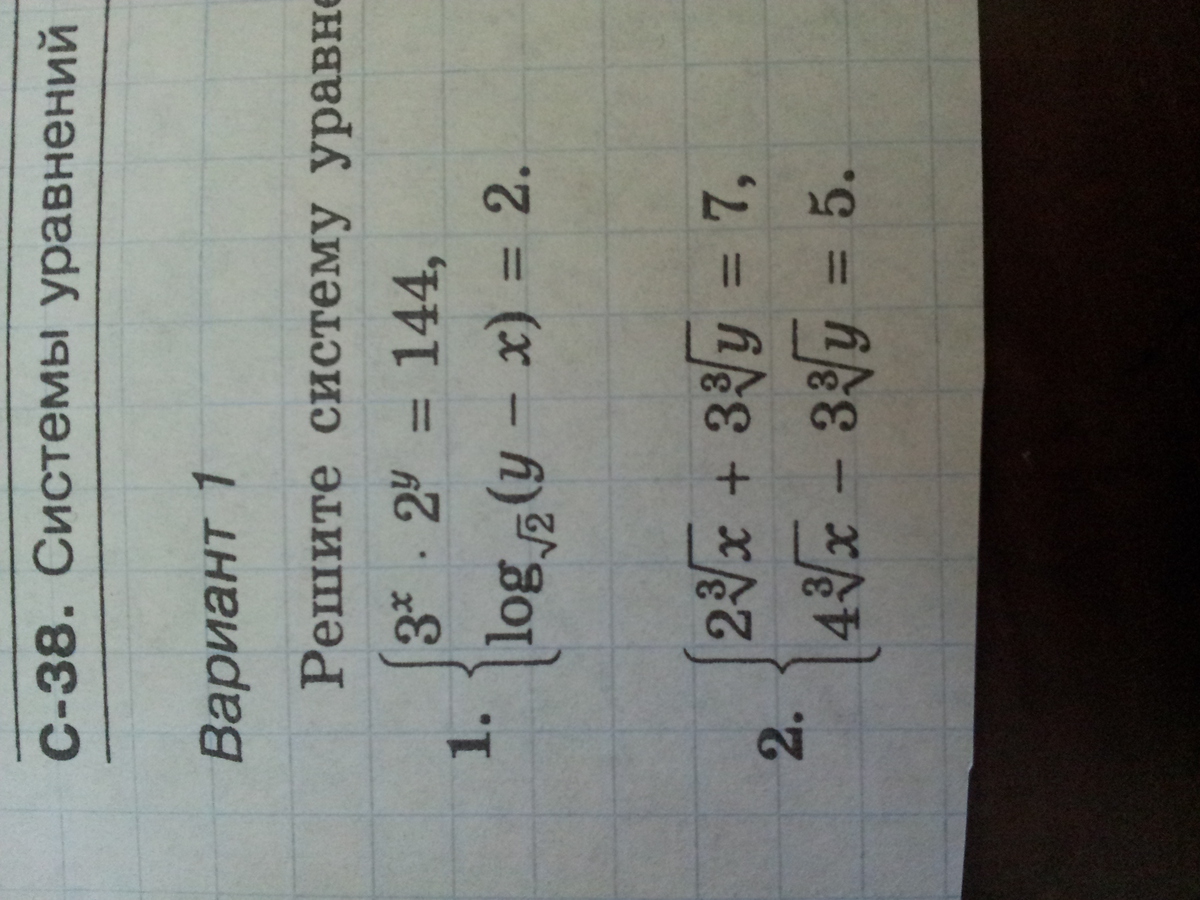 С-38. Системы уравнений
Вариант 1
Решите систему
1. { 3^x · 2^y = 144,
log_√2(y − x) = 2.
2. { 2∛x + 3∛y = 7,
4∛x − 3∛y = 5.